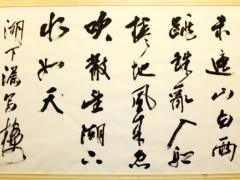 未遮山白雨
跳珠亂入船
捲地風來忽
吹散望湖下
水如天
湖下漏写樓